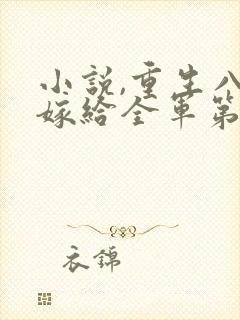 小說,重生八
嫁給全軍第
衣錦